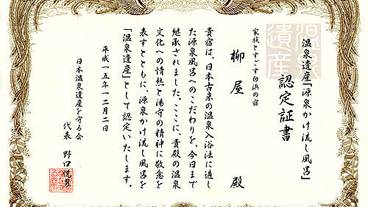 温泉遺産「源泉かけ流し風呂」
認定証書
家族とすごす白浜の宿
柳屋 殿
貴宿は、日本古来の温泉入浴法に適し
た源泉風呂へのこだわりを、今日まで
継承されました。ここに、貴殿の温泉
文化への情熱と湯守の精神に敬意を
表すとともに、源泉かけ流し風呂を
「温泉遺産」として認定いたします。
平成一五年一二月二日
日本温泉遺産を守る会
代表 野口悦男